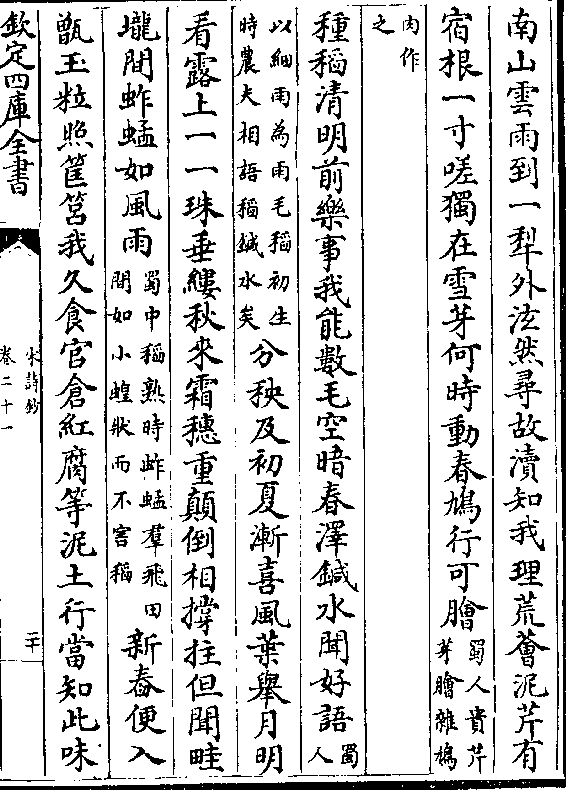 南山雲雨到一犁外泫然尋故瀆知我理荒薈泥芹有
宿根一寸嗟獨在雪芽何時動春鳩行可膾蜀人貴芹
芽膾雜鳩
肉作
之
種稻清明前樂事我能數毛空暗春澤鍼水聞好語蜀人
以細雨為雨毛稻初生
時農夫相語稻鍼水矣分秧及初夏漸喜風葉舉月明
看露上一一珠垂縷秋來霜穗重顛倒相撐拄但聞畦
壠間蚱蜢如風雨蜀中稻熟時蚱蜢羣飛田
間如小蝗狀而不害稻新舂便入
甑玉粒照筐筥我久食官倉紅腐等泥土行當知此味
欽定四庫全書
宋詩鈔
卷二十一
二十